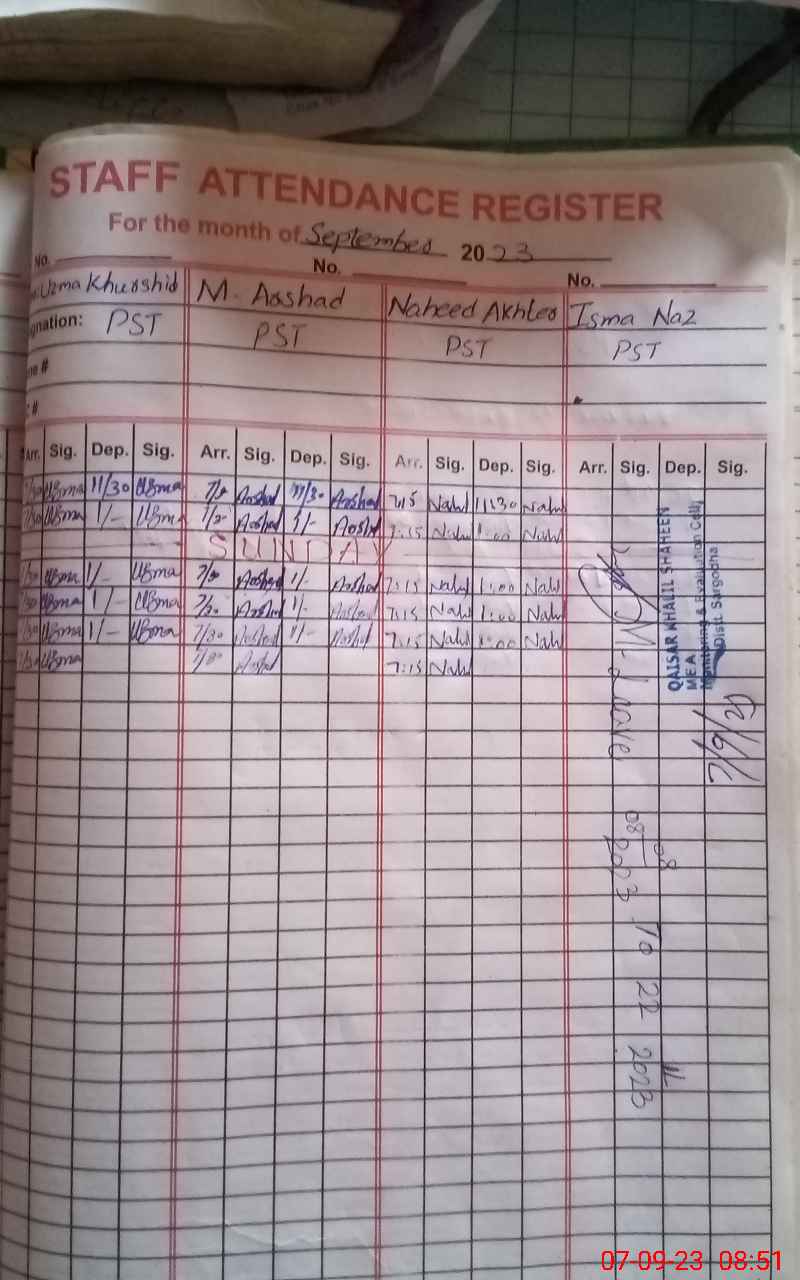 STAFF ATTENDANCE REGISTER
For the month of September 2023
No. No. No.
Uzma Khurshid M. Arshad Naheed Akhter Isma Naz
gnation: PST PST PST PST
#
#
Arr. Sig. Dep. Sig. Arr. Sig. Dep. Sig. Arr. Sig. Dep. Sig. Arr. Sig. Dep. Sig.
Uzma 11/30 Uzma Arshad 11/30 Arshad 7:15 Nah 11:30 Nah
Uzma 1/- Uzma Arshad 1/- Arshad 7:15 Nah 1:00 Nah
SUNDAY
Uzma 1/- Uzma Arshad 1/- Arshad 7:15 Nah 1:00 Nah
Uzma 1/- Uzma 7/30 Arshad 1/- Arshad 7:15 Nah 1:00 Nah
Uzma 1/- Uzma 7/30 Arshad 1/- Arshad 7:15 Nah 1:00 Nah
Uzma Arshad 7:15 Nah
QAISAR KHALIL SHAHEEN
MEA
Monitoring & Evaluation Cell
Distt Sargodha
M-Leave 08 08 2023 To 22 11 2023
07-09-23 08:51